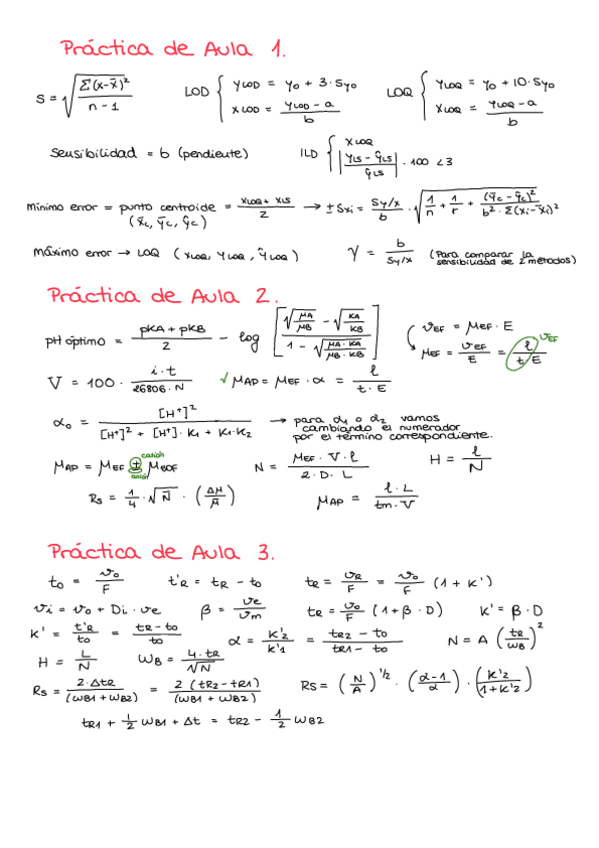 Práctica de Aula 1.
S = √(Σ(x-x̄)² / n-1)   LOD { yLOD = y0 + 3·Sy0   LOQ { yLOQ = y0 + 10·Sy0
xLOD = (yLOD - a) / b   xLOQ = (yLOQ - a) / b
Sensibilidad = b (pendiente)   ILD { xLOQ
|yLS - ŷLS / ŷLS| · 100 < 3
mínimo error = punto centroide = (xLOQ + xLS) / 2 → ± Sxi = (Sy/x / b) · √(1/n + 1/r + (ȳc - ȳc)² / (b² · Σ(xi - x̄i)²))
(x̄c, ȳc, ŷc)
máximo error → LOQ (xLOQ, yLOQ, ŷLOQ)   γ = b / Sy/x (Para comparar la
sensibilidad de 2 métodos)
Práctica de Aula 2.
pH óptimo = (pKA + pKB) / 2 - log [ (√(μA/μB) - √(KA/KB)) / (1 - √(μA·KA / μB·KB)) ]   vEF = μEF · E
μEF = vEF / E = l / t·E   vEF
V = 100 · (i·t) / (26806·N)   √ μAP = μEF · α = l / (t·E)
α0 = [H⁺]² / ([H⁺]² + [H⁺]·K1 + K1·K2) → para α1 o α2 vamos
cambiando el numerador
por el término correspondiente.
catión
μAP = μEF ± μEOF   N = (μEF · V · l) / (2 · D · L)   H = l / N
anión
Rs = 1/4 · √N · (Δμ / μ̄)   μAP = (l · L) / (tm · V)
Práctica de Aula 3.
t0 = v0 / F   t'R = tR - t0   tR = vR / F = v0 / F (1 + K')
vi = v0 + Di · ve   β = ve / vm   tR = v0 / F (1 + β · D)   K' = β · D
K' = t'R / t0 = (tR - t0) / t0   α = K'2 / K'1 = (tR2 - t0) / (tR1 - t0)   N = A (tR / WB)²
H = L / N   WB = 4·tR / √N
Rs = 2·ΔtR / (WB1 + WB2) = 2 (tR2 - tR1) / (WB1 + WB2)   RS = (N / A)^1/2 · (α-1 / α) · (K'2 / 1+K'2)
tR1 + 1/2 WB1 + Δt = tR2 - 1/2 WB2